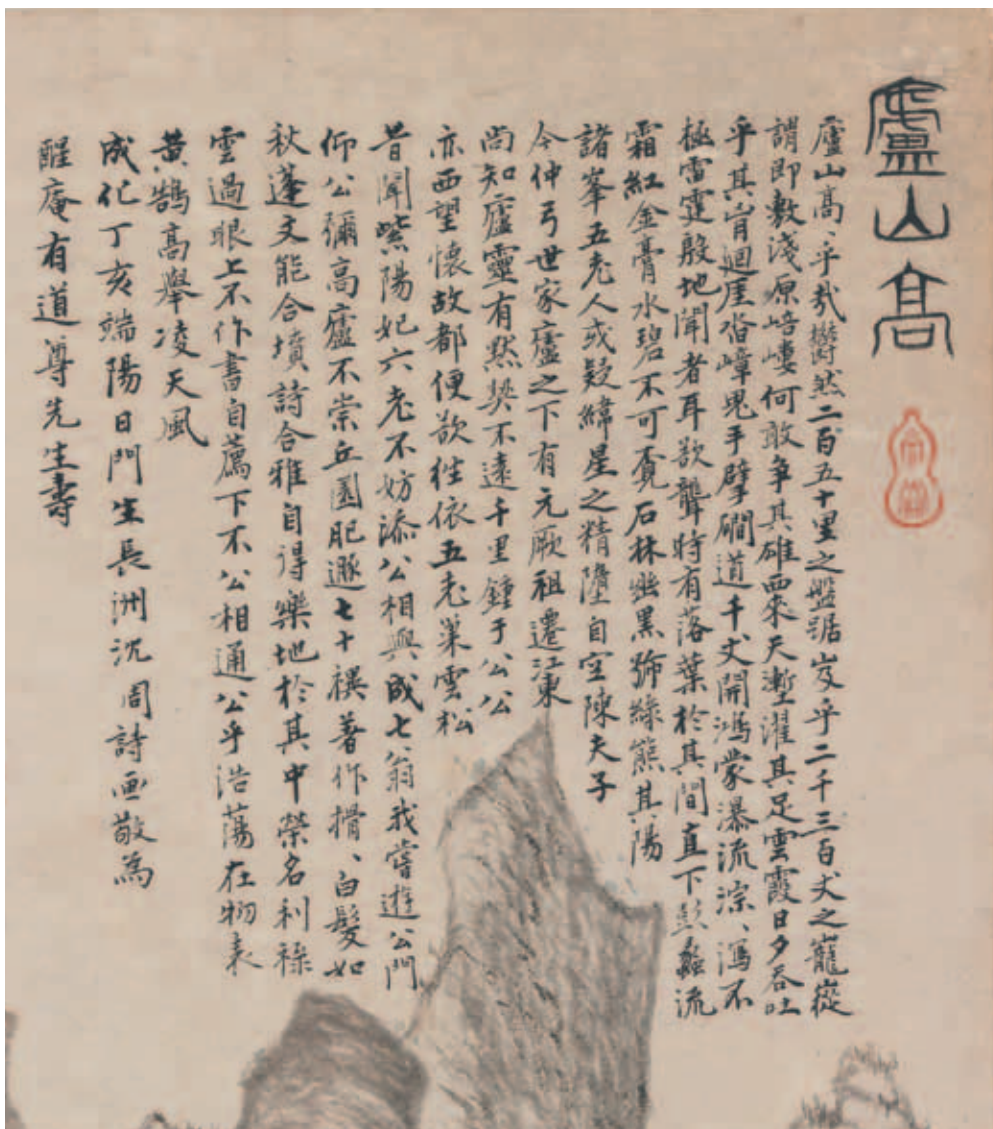 廬山高
廬山高、乎哉鬱然二百五十里之盤踞岌乎二千三百丈之巃嵷
謂即敷淺原培嶁何敢爭其雄西來天塹濯其足雲霞日夕吞吐
乎其胷迴厓沓嶂鬼手擘磵道千丈開鴻蒙瀑流淙、瀉不
極雷霆殷地聞者耳欲聾時有落葉於其間直下彭蠡流
霜紅金膏水碧不可覔石林幽黑號綠熊其陽
諸峯五老人或疑緯星之精墮自空陳夫子
今仲弓世家廬之下有元厥祖遷江東
尚知廬靈有默契不遠千里鍾于公公
亦西望懷故都便欲往依五老巢雲松
昔聞紫陽妃六老不妨添公相與成七翁我嘗遊公門
仰公彌高廬不崇丘園肥遯七十禩著作揹、白髮如
秋蓬文能合墳詩合雅自得樂地於其中榮名利祿
雲過眼上不作書自薦下不公相通公乎浩蕩在物表
黄鵠高舉凌天風
成化丁亥端陽日門生長洲沈周詩画敬為
醒庵有道尊先生壽